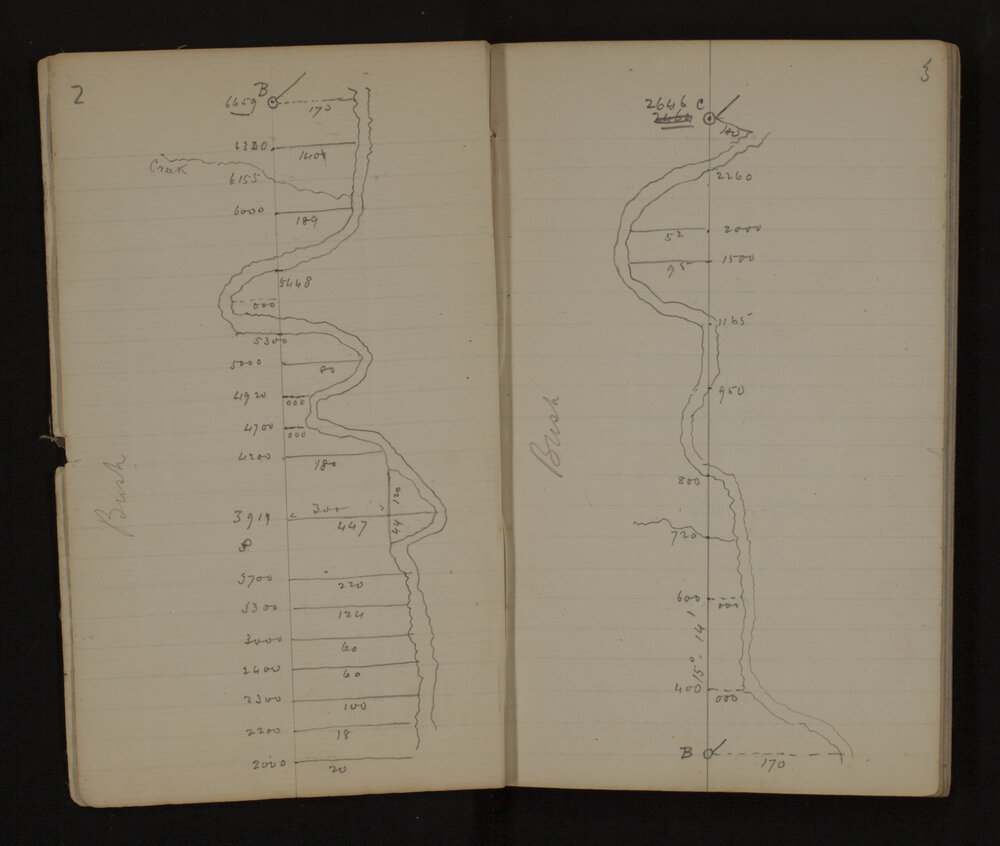 2
B
6659 170
6320 140
Creek
6155
6000 189
5448
000
5300
5000 80
4920 000
4700 000
4200 180
120
3919 300
447 44
3700 220
3300 124
3000 60
2400 60
2300 100
2200 18
2000 20
Bush
3
2646 C
2460
180
2260
52 2000
95 1500
1165
950
Bush
800
720
600 000
15° - 14'
400 000
B
170